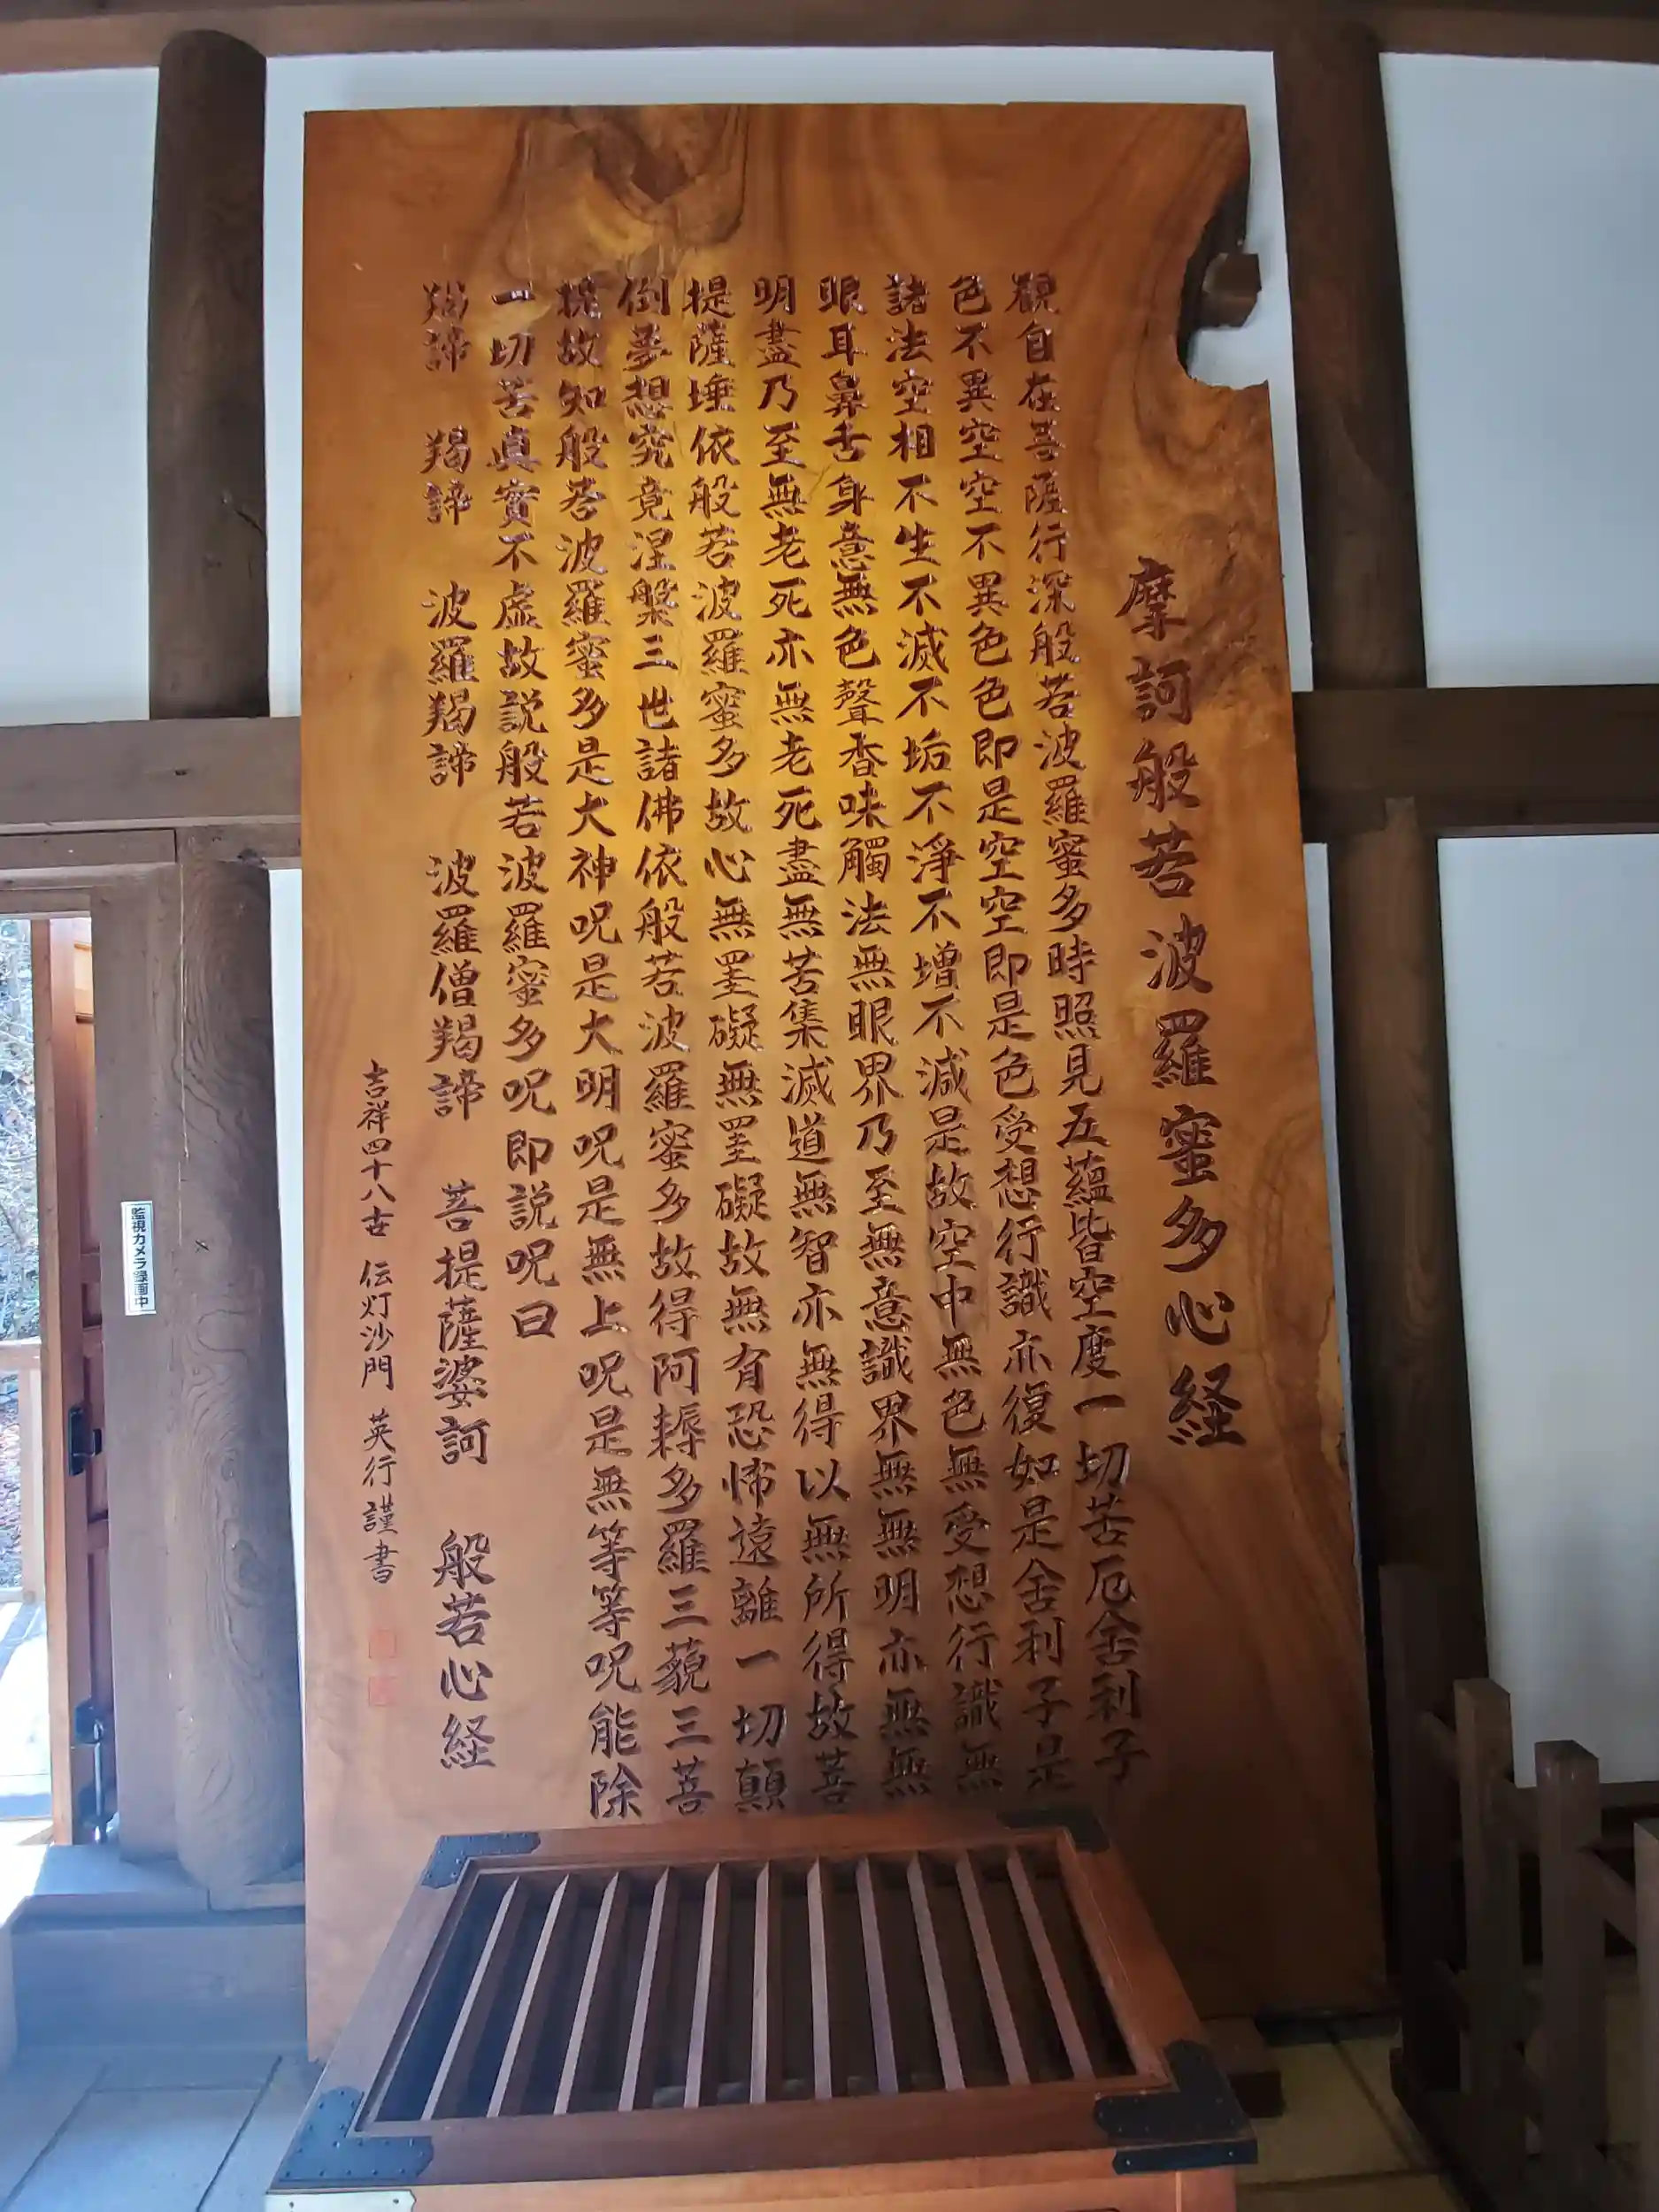 摩訶般若波羅蜜多心経
観自在菩薩行深般若波羅蜜多時照見五蘊皆空度一切苦厄舎利子
色不異空空不異色色即是空空即是色受想行識亦復如是舎利子是
諸法空相不生不滅不垢不淨不増不減是故空中無色無受想行識無
眼耳鼻舌身意無色聲香味觸法無眼界乃至無意識界無無明亦無無
明盡乃至無老死亦無老死盡無苦集滅道無智亦無得以無所得故菩
提薩埵依般若波羅蜜多故心無罣礙無罣礙故無有恐怖遠離一切顛
倒夢想究竟涅槃三世諸佛依般若波羅蜜多故得阿耨多羅三藐三菩
提故知般若波羅蜜多是大神呪是大明呪是無上呪是無等等呪能除
一切苦真實不虚故説般若波羅蜜多呪即説呪曰
羯諦 羯諦 波羅羯諦 波羅僧羯諦 菩提薩婆訶 般若心経
吉祥四十八世 伝灯沙門 英行謹書
監視カメラ録画中